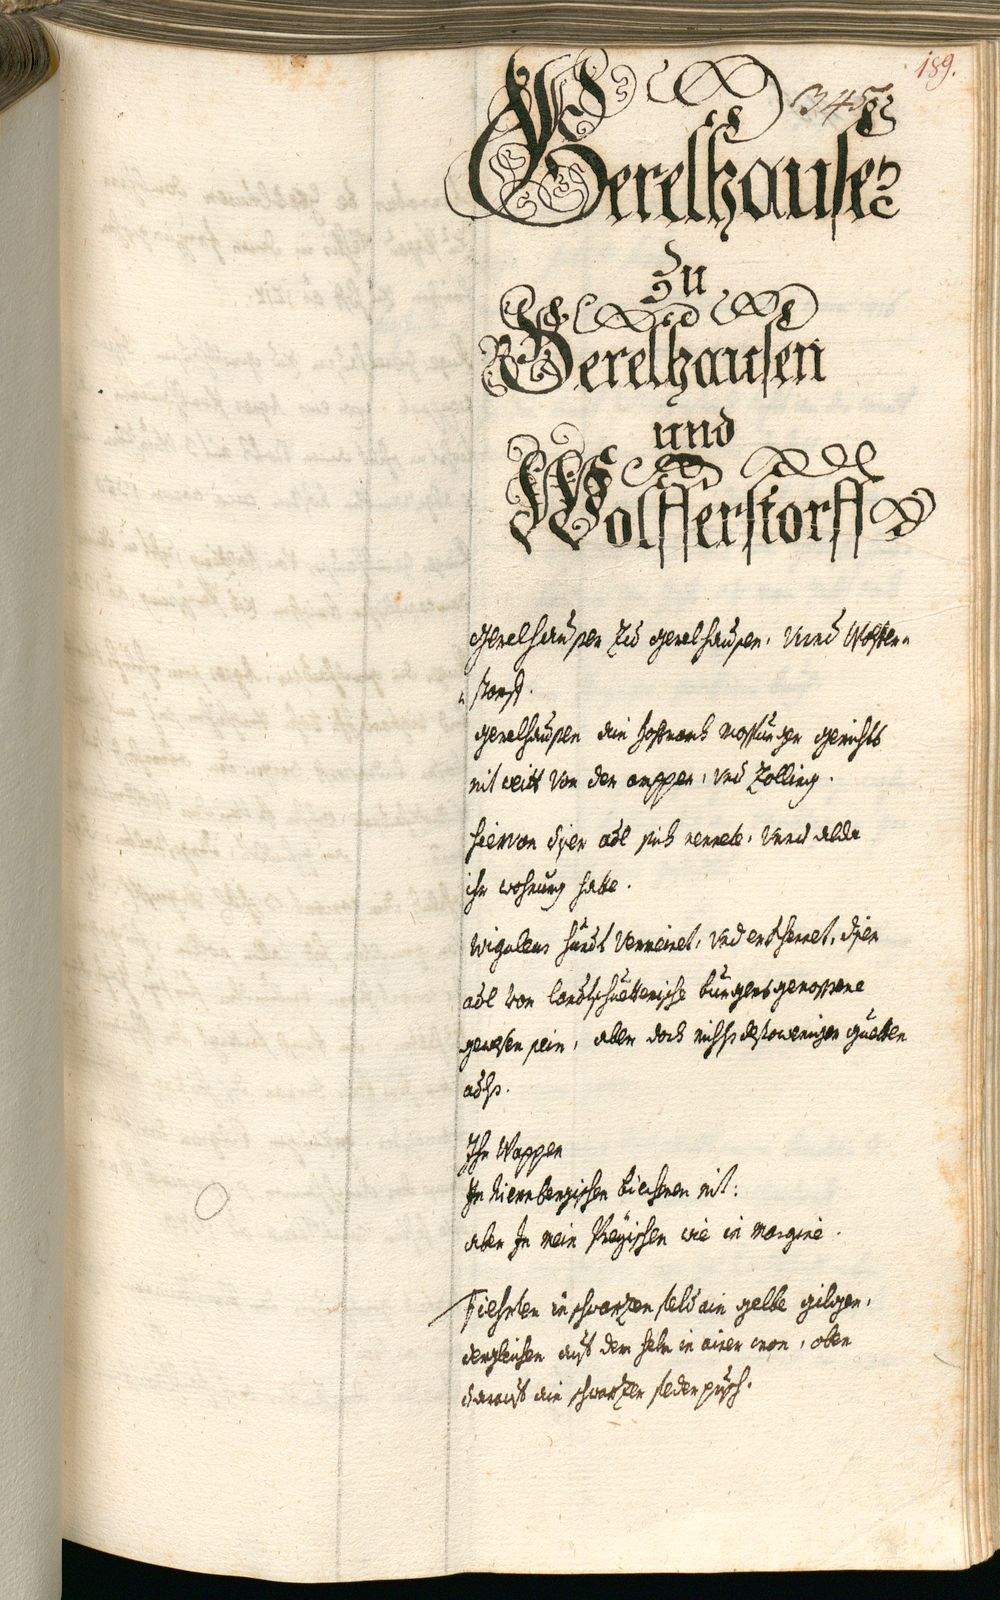 189.
345
Gerelhause
zu
Gerelhausen
und
Wolfferstorff
Gerelhausen Zu Gerelhausen, Vnnd Wolffer-
storff.
Gerelhausen ain hofmarch Mospurger gerichts
nit weitt Von der amper, vnd Zolling.
hiervon diser adl sich nennete, Vnnd alda
ihr wohnung hatte.
Wiguleus Hundt Vermeinet, Vnd diser
adl Von landtshuetterische burgersgenossene
gewesen sein, aber doch nichts destoweniger guetten
adls.
Ihr Wappen
In Niernbergischen biechern nit:
aber In mein Preyischen wie in margine.
Fiehrten in schwarzen feld ain gelbe gilgen,
dergleichen auf dem helm in ainer cron, oben
darauf ain schwarzen feder pusch.